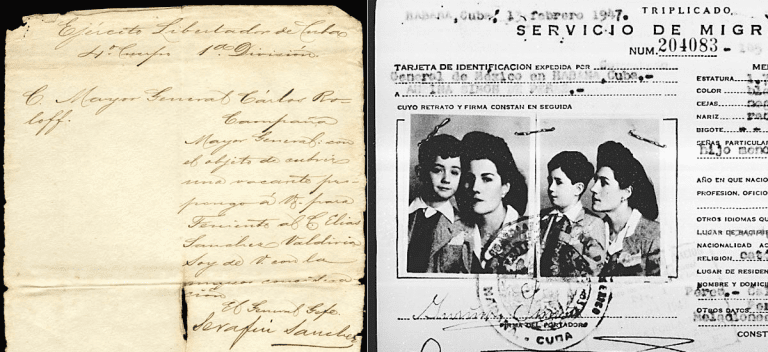 Ejército Libertador de Cuba
4º Cuerpo 1ª División
C. Mayor General Cárlos Ro-
loff:
Campaña
Mayor General: con
el objeto de cubrir
una vacante pro-
pongo á V. para
Teniente al C. Elias
Sanchez Valdivia
Soy de V. con la
mayor consideración
El General Jefe
Serafin Sanchez
HABANA, Cuba. 13 febrero 1947.
TRIPLICADO.
SERVICIO DE MIGR
NUM. 204083
TARJETA DE IDENTIFICACION EXPEDIDA POR
General de México en HABANA, Cuba.-
A
CUYO RETRATO Y FIRMA CONSTAN EN SEGUIDA
FIRMA DEL PORTADOR
CUBA
ME
ESTATURA
COLOR
CEJAS
NARIZ
BIGOTE
SEÑAS PARTICULAR
hijo meno
AÑO EN QUE NACIO
PROFESION, OFICIO
OTROS IDIOMAS QU
LUGAR DE NACIM
NACIONALIDAD AC
RELIGION
LUGAR DE RESIDEN
NOMBRE Y DOMICI
Pérez.-
OTROS DATOS
Relaciones
CONST